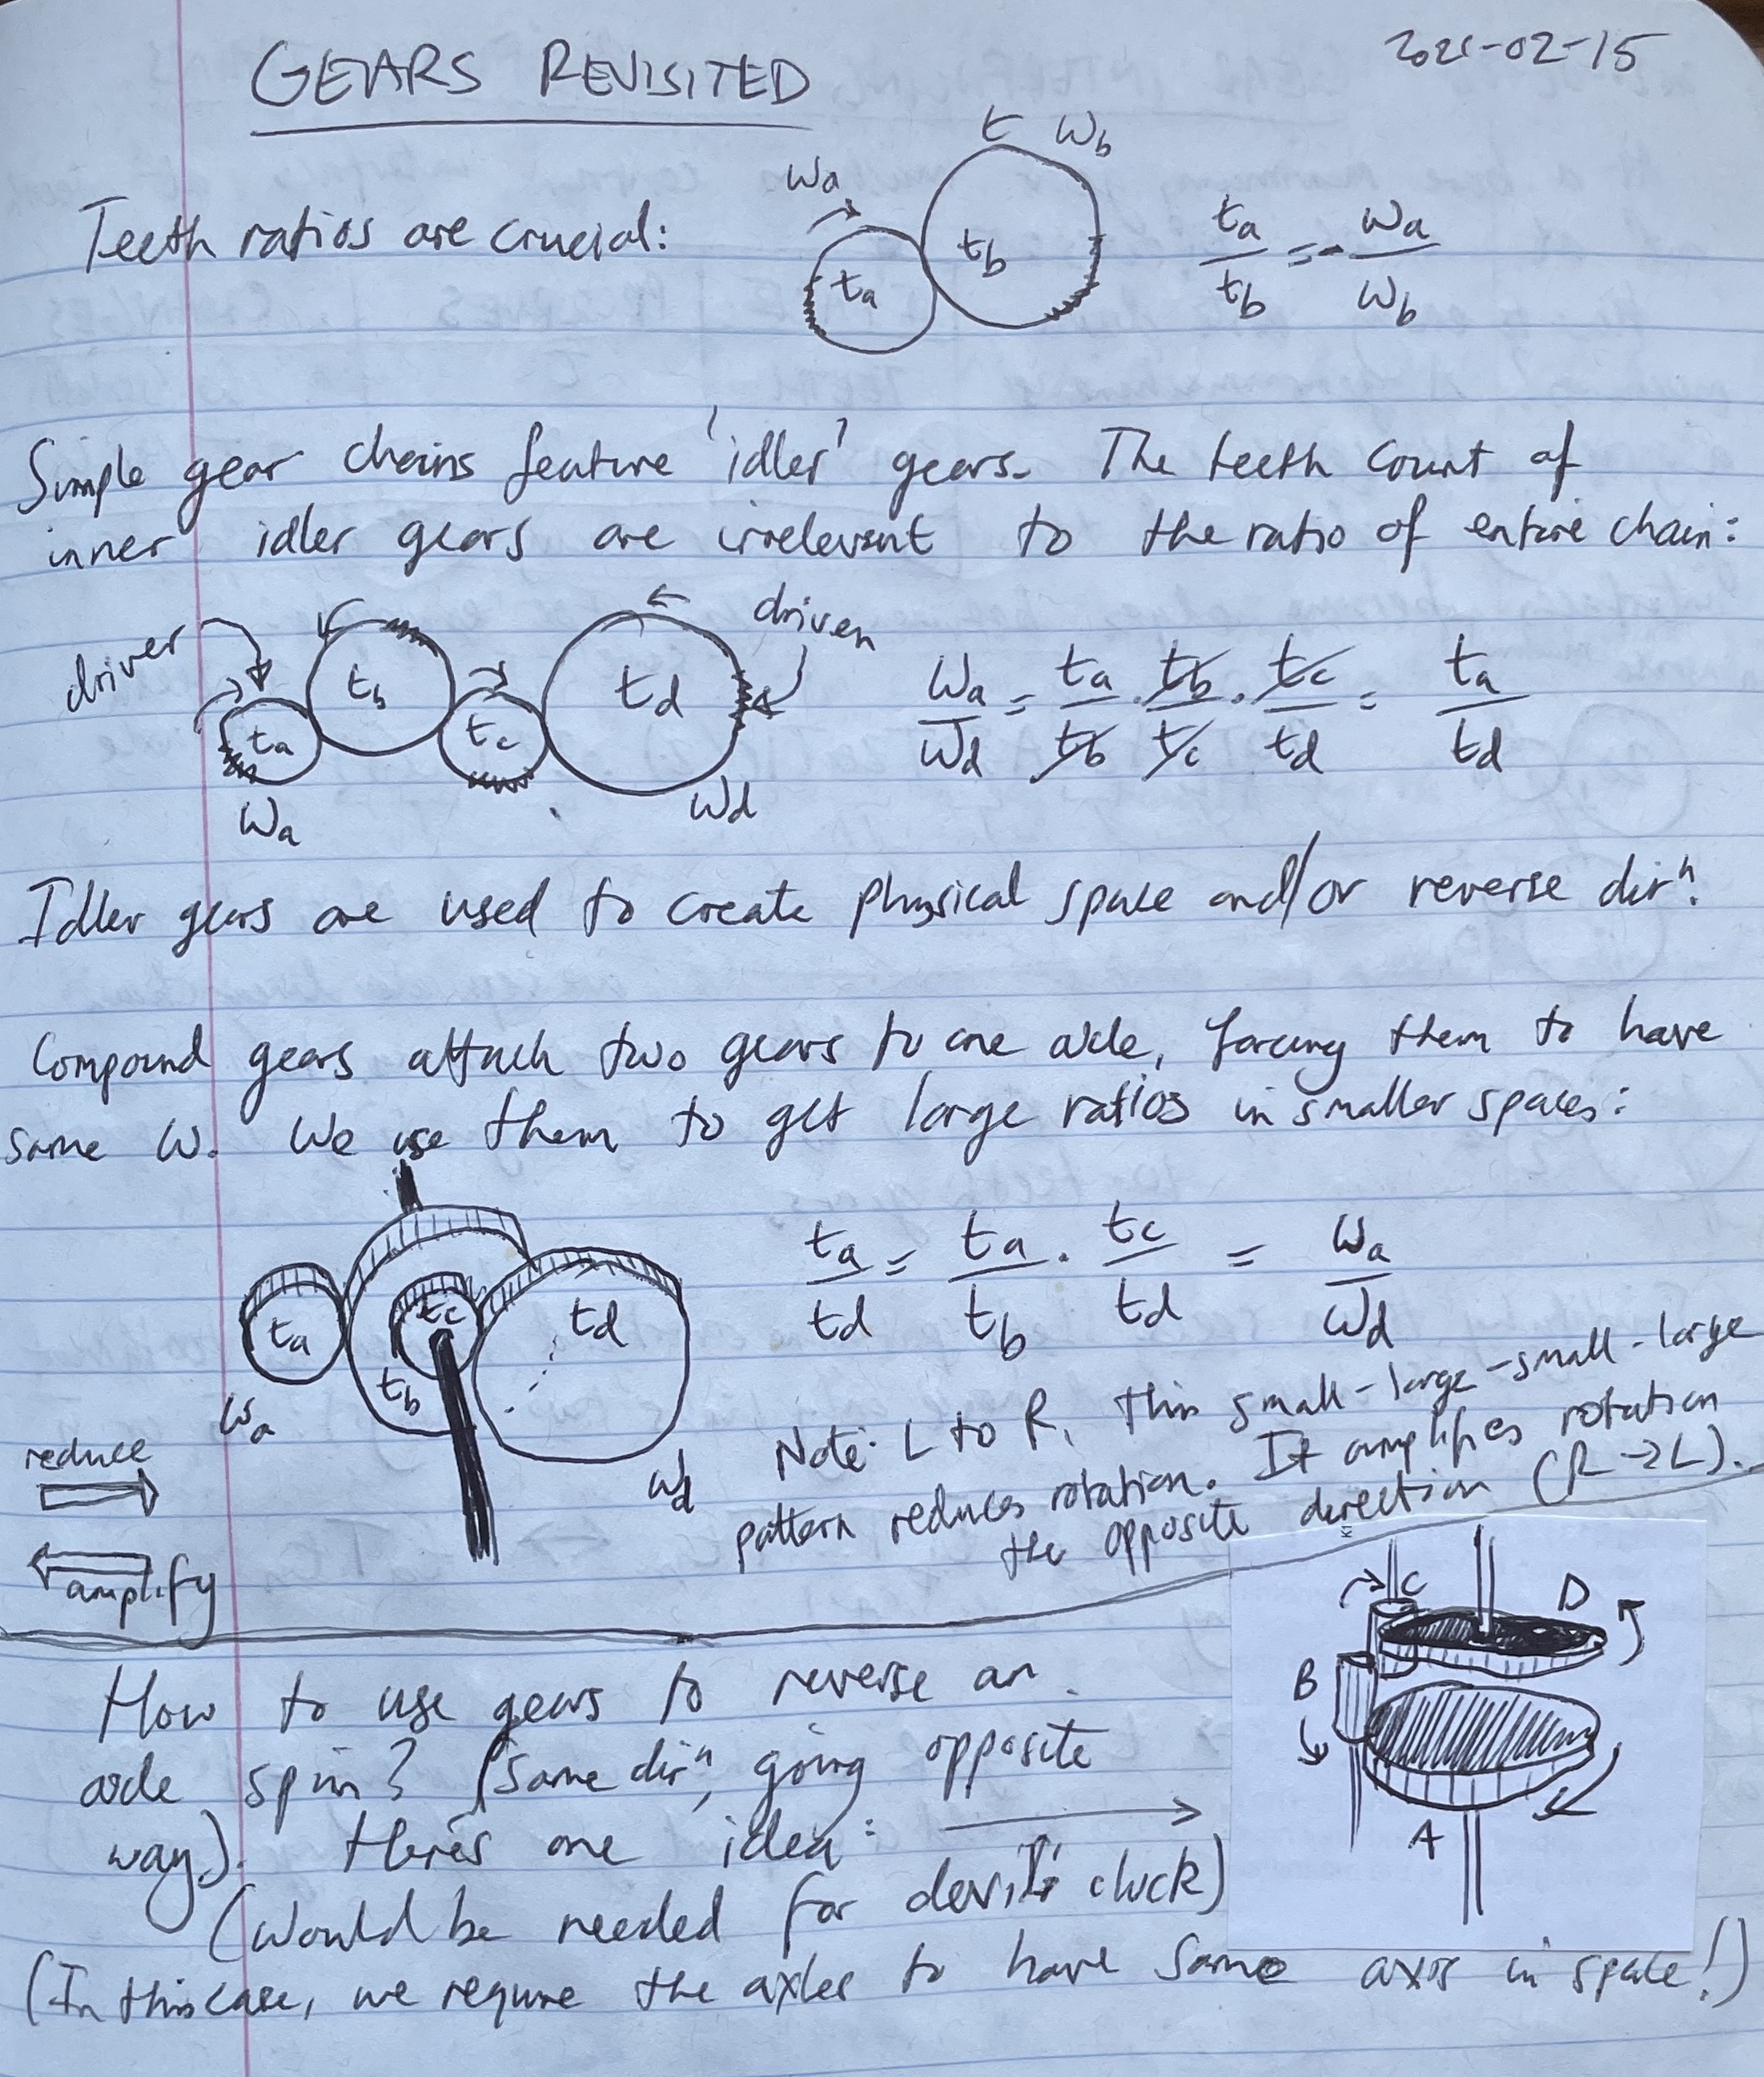 GEARS REVISITED
2021-02-15
Teeth ratios are crucial:
ωa
t ωb
ta
tb
ta/tb = - ωa/ωb
Simple gear chains feature 'idler' gears. The teeth count of
inner idler gears are irrelevant to the ratio of entire chain:
driver
driven
ta
tb
tc
td
ωa
ωd
ωa/ωd = ta/tb · tb/tc · tc/td = ta/td
Idler gears are used to create physical space and/or reverse dirⁿ.
Compound gears attach two gears to one axle, forcing them to have
same ω. We use them to get large ratios in smaller spaces:
ta
tb
tc
td
ωa
ωd
ta/td = ta/tb · tc/td = ωa/ωd
reduce
amplify
Note: L to R, this small-large-small-large
pattern reduces rotation. It amplifies rotation
the opposite direction (R→L).
How to use gears to reverse an
axle spin? (same dirⁿ, going opposite
way). Here's one idea:
(Would be needed for devil's clock)
(In this case, we require the axles to have same axis in space!)
C
D
B
A